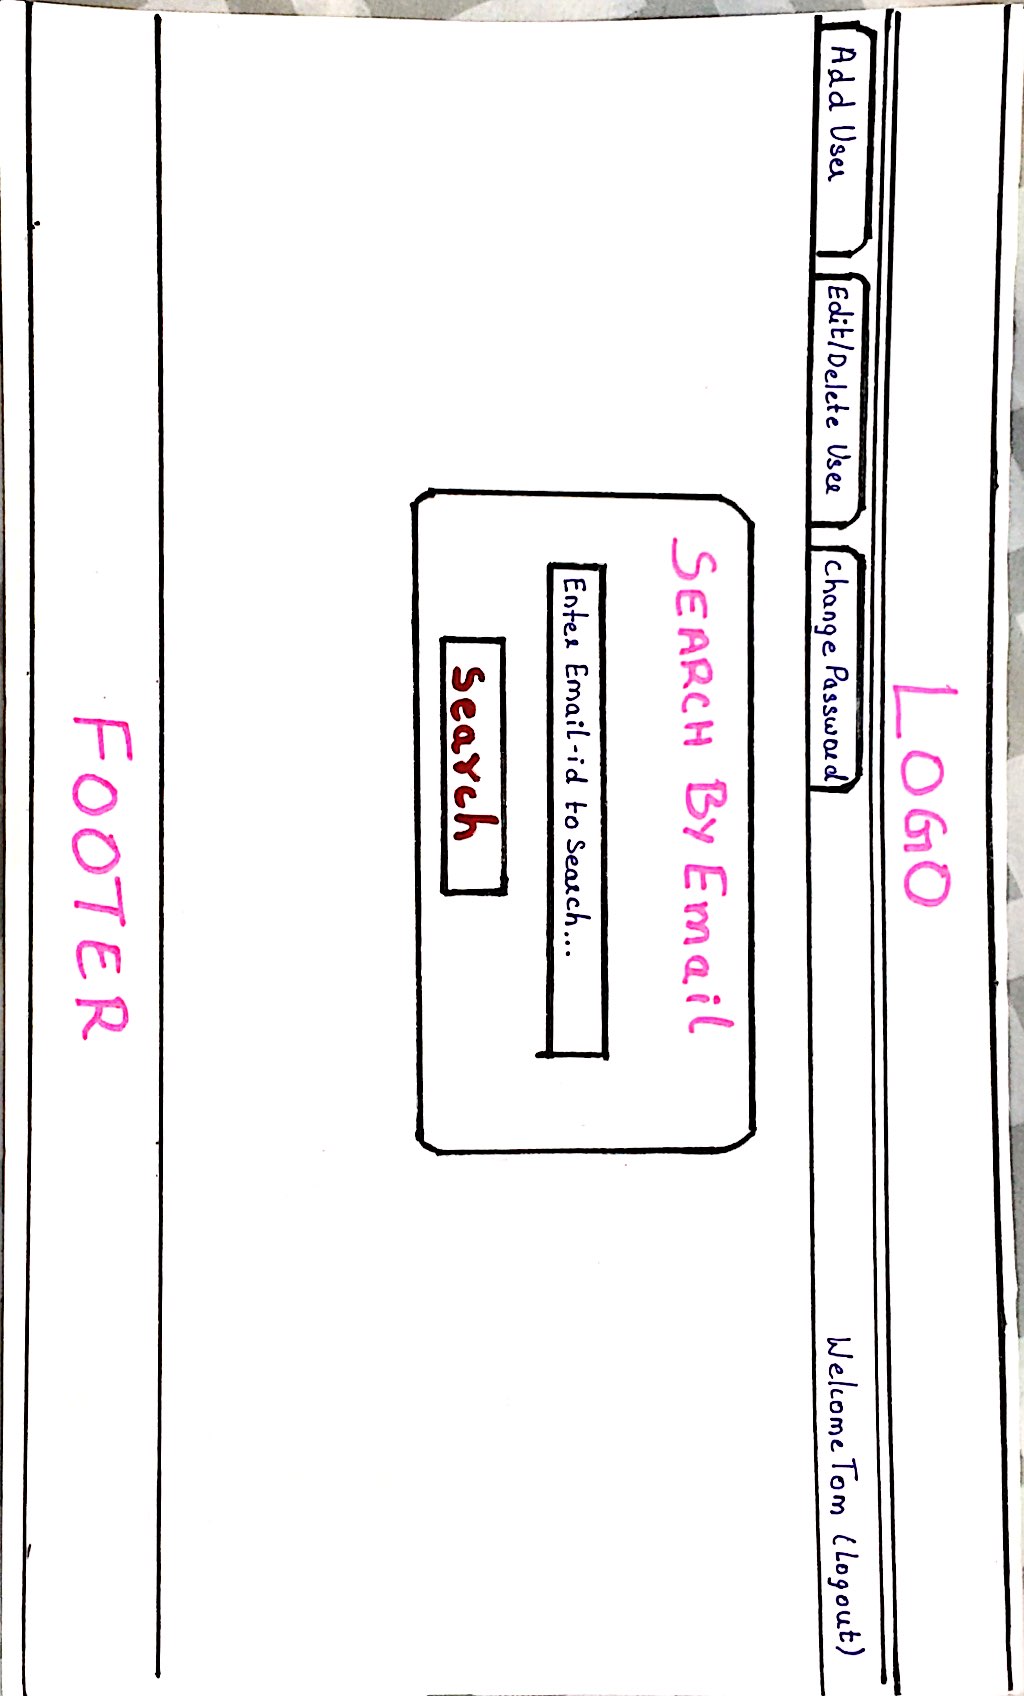 LOGO
Add User Edit/Delete User Change Password Welcome Tom (Logout)
SEARCH By Email
Enter Email-id to Search...
Search
FOOTER